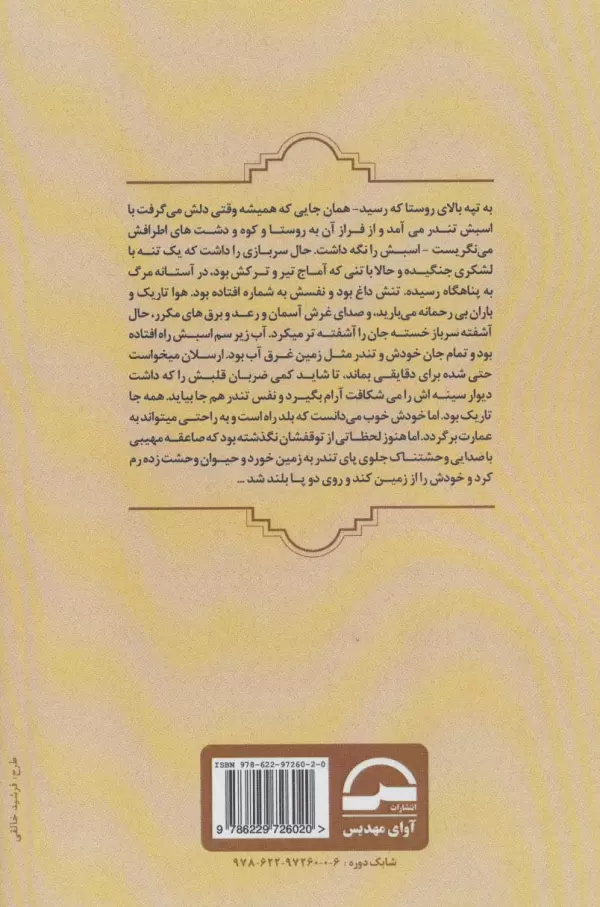 به تپه بالای روستا که رسید- همان جایی که همیشه وقتی دلش می‌گرفت با
اسبش تندر می آمد و از فراز آن به روستا و کوه و دشت های اطرافش
می‌نگریست - اسبش را نگه داشت. حال سربازی را داشت که یک تنه با
لشکری جنگیده و حالا با تنی که آماج تیر و ترکش بود، در آستانه مرگ
به پناهگاه رسیده. تنش داغ بود و نفسش به شماره افتاده بود. هوا تاریک و
باران بی رحمانه می‌بارید، و صدای غرش آسمان و رعد و برق های مکرر، حال
آشفته سرباز خسته جان را آشفته تر میکرد. آب زیر سم اسبش راه افتاده
بود و تمام جان خودش و تندر مثل زمین غرق آب بود. ارسلان میخواست
حتی شده برای دقایقی بماند، تا شاید کمی ضربان قلبش را که داشت
دیوار سینه اش را می شکافت آرام بگیرد و نفس تندر هم جا بیاید. همه جا
تاریک بود. اما خودش خوب می‌دانست که بلد راه است و به راحتی میتواند به
عمارت برگردد. اما هنوز لحظاتی از توقفشان نگذشته بود که صاعقه مهیبی
با صدایی وحشتناک جلوی پای تندر به زمین خورد و حیوان وحشت زده رم
کرد و خودش را از زمین کند و روی دو پا بلند شد ...
طرح: فرشید خالقی
ISBN 978-622-97260-2-0
9 786229 726020 >
انتشارات
آوای مهدیس
شابک دوره : ۹۷۸-۶۲۲-۹۷۲۶۰-۰-۶